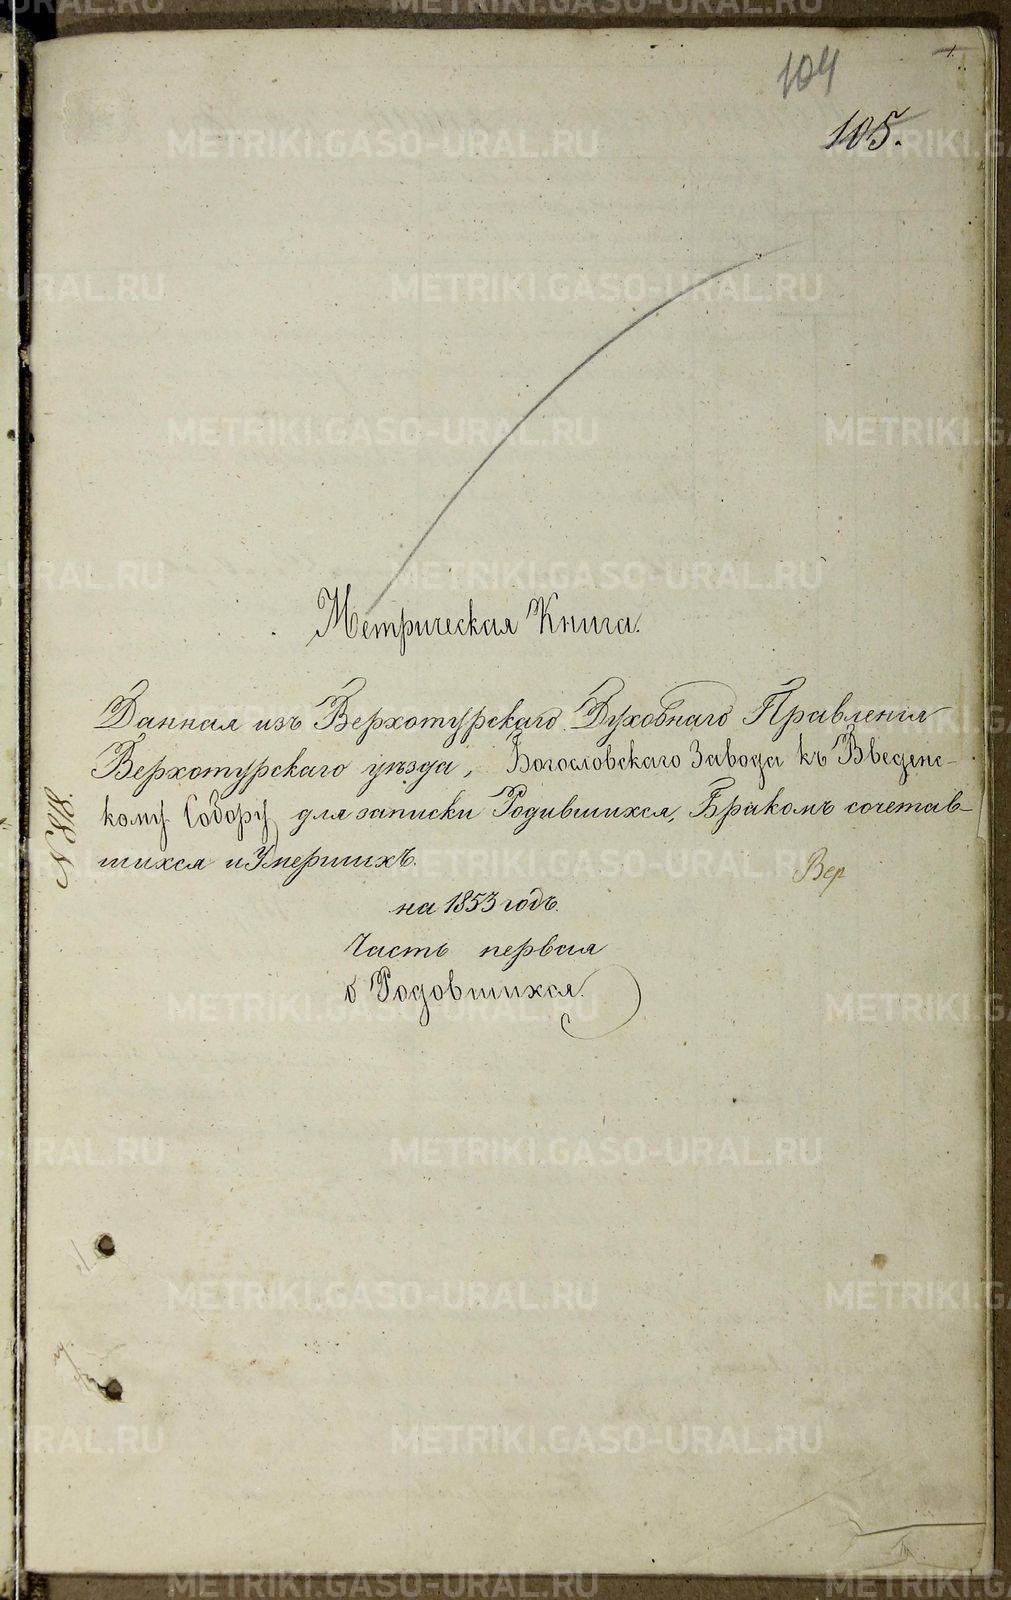 104
105.
Метрическая Книга.
Данная изъ Верхотурскаго Духовнаго Правленія
Верхотурскаго уѣзда, Богословскаго Завода къ Введенс-
кому Собору, для записки Родившихся, Бракомъ сочетав-
шихся и Умершихъ.
Вер
на 1853 годъ.
Часть первая
о Родовшихся.
N 818.
METRIKI.GASO-URAL.RU